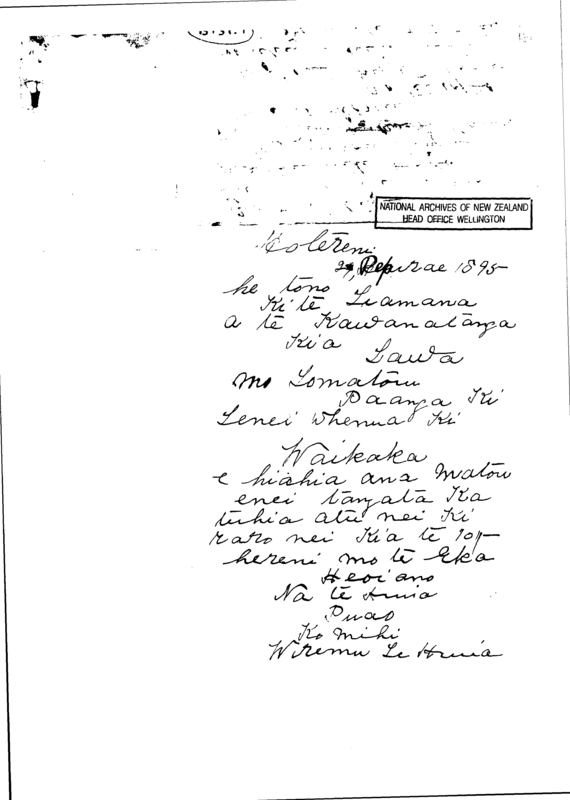 NATIONAL ARCHIVES OF NEW ZEALAND
HEAD OFFICE WELLINGTON
Kolereni
Pepurae 1895
he tono
Ki te Tiamana
a te Kawanatanga
Kia
Tawa
mo Tomatou
Paanga Ki
Tenei Whenua Ki
Waikaka
e hiahia ana matou
enei tangata Ka
tuhia atu nei Ki
raro nei Kia te 10/-
hereni mo te Eka
Heoi ano
Na te Huia
Puao
Ko mihi
Wiremu Te Huia